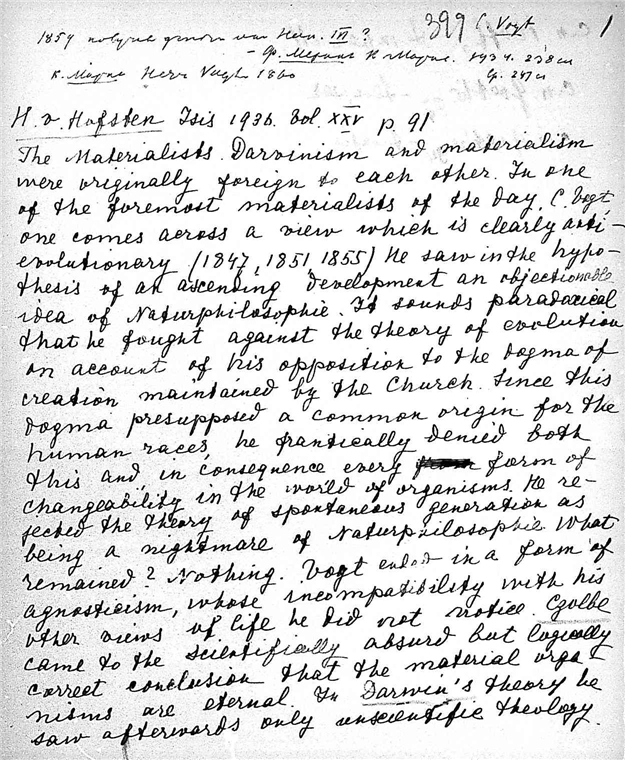 399 C. Vogt 1
1859 получил деньги от Нап. III ?
– Ф. Меринг К. Маркс. 1934. 238 сл
К. Маркс Herr Vogt 1860 Ср. 247 сл
H. v. Hofsten Isis 1936. Vol. XXV p. 91
The Materialists. Darvinism and materialism
were originally foreign to each other. In one
of the foremost materialists of the day, C. Vogt,
one comes across a view which is clearly anti-
evolutionary (1847, 1851 1855) He saw in the hypo-
thesis of an ascending development an objectionable
idea of Naturphilosophie. It sounds paradoxical
that he fought against the theory of evolution
on account of his opposition to the dogma of
creation maintained by the Church. Since this
dogma presupposed a common origin for the
human races, he frantically denied both
this and, in consequence every form of
changeability in the world of organisms. He re-
jected the theory of spontaneous generation as
being a nightmare of Naturphilosophie. What
remained? Nothing. Vogt ended in a form of
agnosticism, whose incompatibility with his
other views of life he did not notice. Czolbe
came to the scientifically absurd but logically
correct conclusion that the material orga-
nisms are eternal. In Darwin's theory he
saw afterwards only unscientific theology.